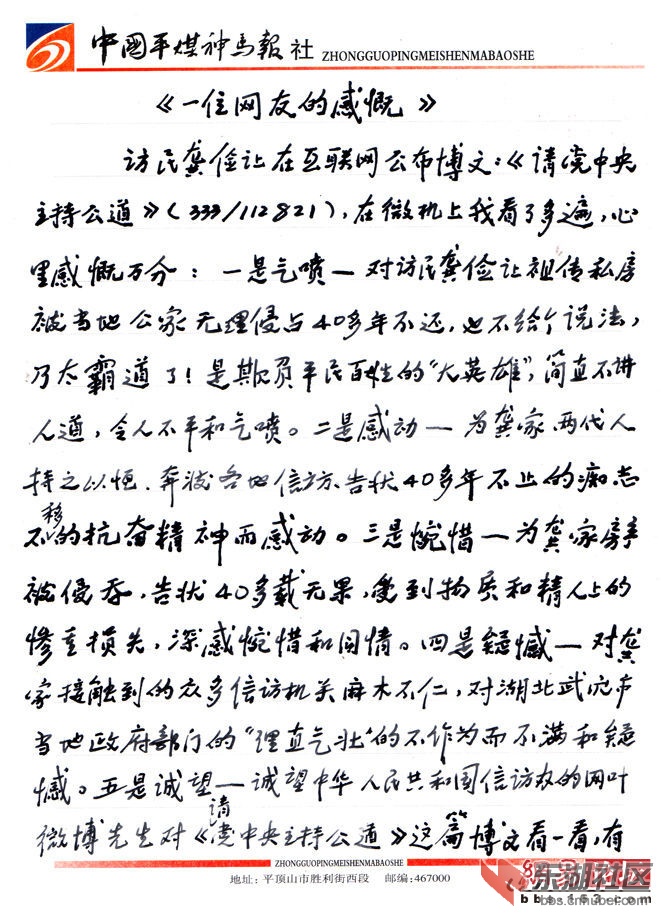 中國平煤神马報社 ZHONGGUOPINGMEISHENMABAOSHE
《一位网友的感慨》
访民龚俭让在互联网公布博文:《请党中央
主持公道》(333/112821),在微机上我看了多遍,心
里感慨万分:一是气喷—对访民龚俭让祖传私房
被当地公家无理侵占40多年不还,也不给个说法,
乃太霸道了!是欺负平民百姓的"大英雄",简直不讲
人道,令人不平和气喷。二是感动—为龚家两代人
持之以恒、奔波各地信访、告状40多年不止的痴志
不移的抗奋精神而感动。三是惋惜—为龚家房产
被侵吞,告状40多载无果,受到物质和精人上的
惨重损失,深感惋惜和同情。四是疑憾—对龚
家接触到的众多信访机关麻木不仁,对湖北武穴市
当地政府部门的"理直气壮"的不作为而不满和疑
憾。五是诚望—诚望中华人民共和国信访放的网叶
微博先生对《请党中央主持公道》这篇博文看一看,有
ZHONGGUOPINGMEISHENMABAOSHE
地址:平顶山市胜利街西段 邮编:467000
东湖社区
bbs.cnhubei.com